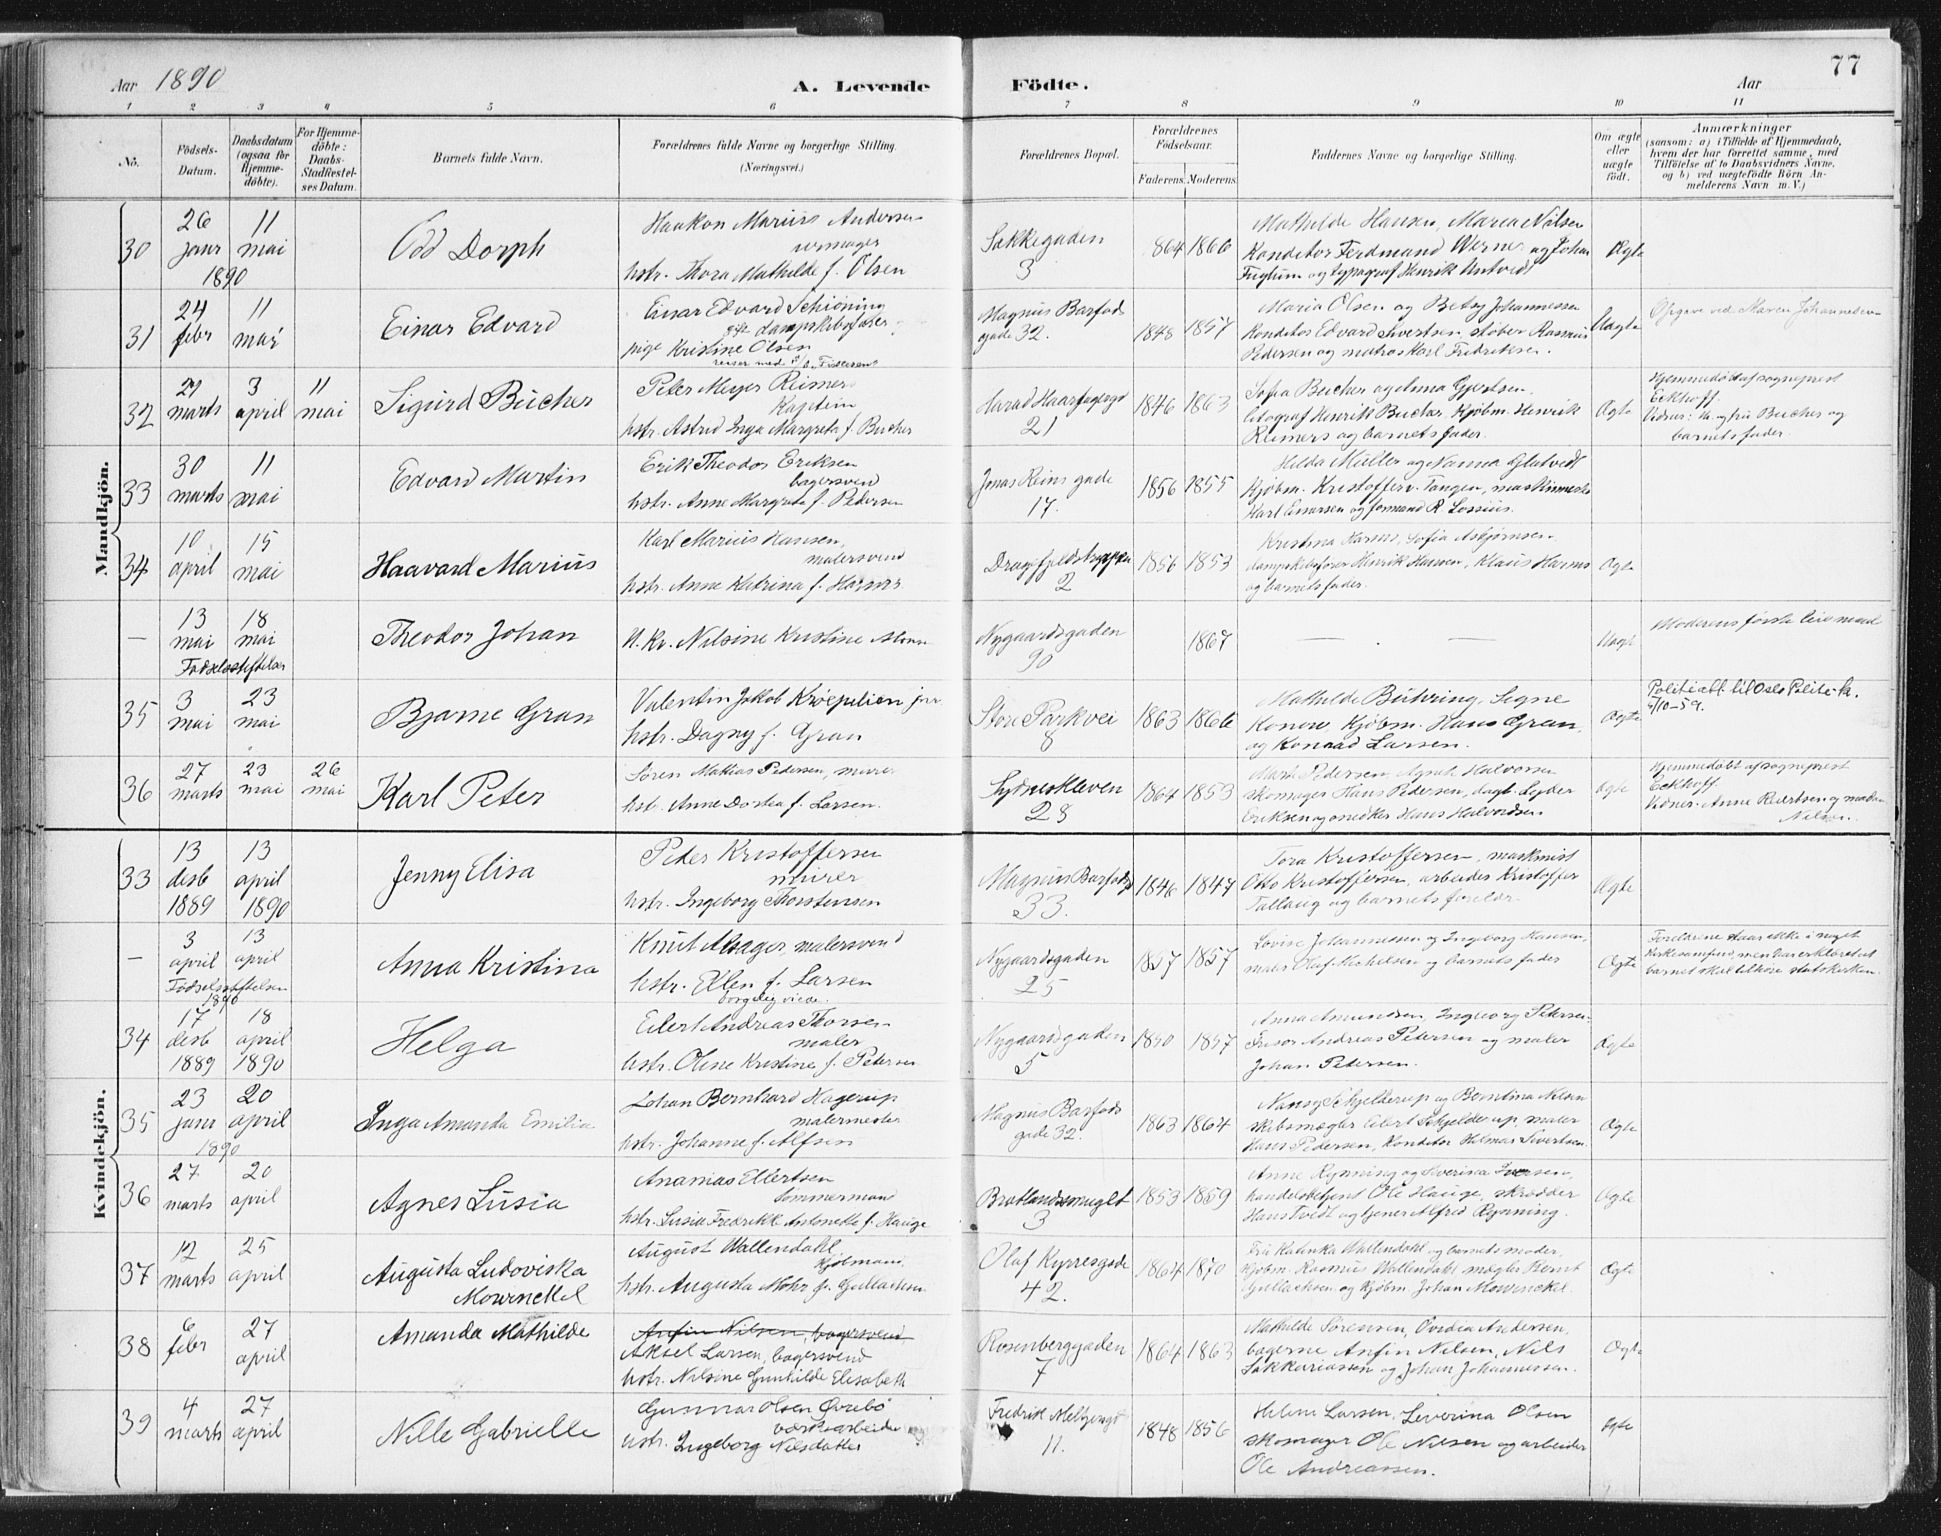 Aar 1890
A. Levende
Födte.
Aar
77
1 2 3 4 5 6 7 8 9 10 11
No.
Födsels-
Datum.
Daabsdatum
(ogsaa for
Hjemme-
döbte).
For Hjemme-
döbte:
Daabs-
Stadfæstel-
ses Datum.
Barnets fulde Navn.
Forældrenes fulde Navne og borgerlige Stilling.
(Næringsvei.)
Forældrenes Bopæl.
Forældrenes
Födselsaar.
Faderens. Moderens.
Faddernes Navne og borgerlige Stilling.
Om ægte
eller
uægte
födt.
Anmærkninger
(saasom: a) i Tilfælde af Hjemmedaab,
hvem der har forrettet samme, med
Tilföielse af to Daabsvidners Navne,
og b) ved uægtefödte Börn An-
melderens Navn m. V.)
Mandkjön.
30
26 janr 1890
11 mai
Odd Dorph
Haakon Marius Andersen
urmager
hstr. Thora Mathilde f. Olsen
Sekkegaden
3
864 1866
Mathilde Hansen, Maria Nilsen
Konditor Ferdinand Werner og Johan
Fuglum og typograf Henrik Antvedt
Ægte
31
24 febr
11 mai
Einar Edvard
Einar Edvard Schiöning
gift dampskibsförer
pige Kristine Olsen
Magnus Barfods
gade 32.
1848 1857
Maria Olsen og Betsy Johannessen
Konditor Edvard Sivertsen, støber Rasmus
Pedersen og matros Karl Fredriksen.
Uægte
Opgave ved Maren Johannesen
32
27 marts
3 april
11 mai
Sigurd Bucher
Peter Meyer Reimers
Kaptein
hstr. Astrid Inga Margreta f. Bucher
Harald Haarfagersgd
21
1846 1863
Sofia Bucher og Anna Gjertsen.
litograf Henrik Bucher, Kjøbm. Henrik
Reimers og barnets fader.
Ægte
Hjemmedøbt af sogneprest
Eckhoff.
Vidner: Hr. og fru Bucher og
barnets fader.
33
30 marts
11 mai
Edvard Martin
Erik Theodor Eriksen
bagersvend
hstr. Anne Margreta f. Pedersen
Jonas Reins gade
17.
1856 1855
Hilda Müller og Nanna Glatvedt
Kjøbm. Kristoffer v. Tangen, maskinmester
Karl Einarsen og formand R. Lossius.
34
10 april
15 mai
Haavard Marius
Karl Marius Hansen,
malersvend
hstr. Anne Katrina f. Harms
Dragefjeldstrappen
2
1856 1853
Kristina Harms, Sofia Asbjørnsen.
dampskibsfører Henrik Hansen, Klaus Harms
og barnets fader.
Ægte
—
13 mai
18 mai
Fødselsstiftelsen
Theodor Johan
U. Kv. Nilsine Kristine
Nygaardsgaden
90
1867
— —
Uægte
Moderens første leiermaal
35
3 mai
23 mai
Bjarne Gran
Valentin Jakob Krøepelien jnr.
hstr. Dagny f. Gran
Store Parkvei
8
1863 1866
Mathilde Bühring, Signe
Konow, Kjøbm. Hans Gran
og Konrad Larsen.
Ægte
Politiatt. til Oslo Politik.
7/10-59.
36
27 marts
23 mai
26 mai
Karl Peter
Søren Mathias Pedersen, murer
hstr. Anne Dortea f. Larsen.
Sydneskleven
28
1864 1853
Marte Pedersen, Agnete Halvorsen
skomager Hans Pedersen, dagl. Lyder
Eriksen og snedker Hans Halvordsen
Ægte
Hjemmedøbt af sogneprest
Eckhoff.
Vidner: Anne Reiertsen og madam
Nilsen.
Kvindekjön.
33
13 desb 1889
13 april 1890
Jenny Elisa
Peder Kristoffersen
murer
hstr. Ingeborg Thorstensen
Magnus Barfodsg
33.
1846 1847
Tora Kristoffersen, maskinist
Otto Kristoffersen, arbeider Kristoffer
Tallaug og barnets forældr.
Ægte
—
3 april
13 april
Fødselsstiftelsen
1890
Anna Kristina
Knut Alsager, malersvend
hstr. Ellen f. Larsen
borgelig viede.
Nygaardsgaden
25
1857 1857
Lovise Johannessen og Ingeborg Hansen,
maler Olaf Michelsen og barnets fader
Ægte
Forældrene staar ikke i noget
kirkesamfund, men har erklæret at
barnet skal tilhøre statskirken.
34
17 desb 1889
18 april 1890
Helga
Eilert Andreas Thorsen
maler
hstr. Oline Kristine f. Petersen
Nygaardsgaden
5
1850 1857
Anna Amundsen, Ingeborg Petersen.
Frisør Andreas Petersen og maler
Johan Petersen.
Ægte
35
23 janr 1890
20 april
Inga Amanda Emilia
Johan Bernhard Hagerup
malermester
hstr. Johanne f. Alfsen
Magnus Barfods
gade 32.
1863 1864
Nancy Schjelderup og Berntina Nilsen
skibsmægler Eilert Schjelderup, maler
Hans Pedersen, Konditor Hilmar Sivertsen
Ægte
36
27 marts
20 april
Agnes Lusia
Ananias Ellertsen
tømmermand
hstr. Lusia Fredrikk. Antonette f. Hauge
Bratlandssmuget
3
1853 1859
Anne Rynning og Severina Iversen,
handelsbetjent Ole Hauge, skrædder
Hans Tvedt og tjener Alfred Rynning.
Ægte
37
12 marts
25 april
Augusta Ludoviska
Mowinckel
August Wallendahl
Kjøbmand.
hstr. Augusta Mohr f. Gullachsen
Olaf Kyrresgade
42.
1864 1870
Fru Katinka Wallendahl og barnets moder,
Kjøbm. Rasmus Wallendahl mægler Herbrt
Gullachsen og Kjøbm. Johan Mowinckel.
Ægte
38
6 febr
27 april
Amanda Mathilde
Anfin Nilsen, bagersvend
Aksel Larsen, bagersvend
hstr. Nilsine Gunhilde Elisabeth
Rosenberggaden
7
1864 1863
Mathilde Sørensen, Ovidia Andersen,
bagerne Anfin Nilsen, Nils
Sakkariassen og Johan Johannessen.
Ægte
39
4 marts
27 april
Nille Gabrielle
Gunnar Olsen Øvrebø
værksarbeider
hstr. Ingeborg Nilsdatter
Fredrik Meltzersgt
11.
1848 1856
Helene Larsen, Severina Olsen
skomager Ole Nilsen og arbeider
Ole Andreassen.
Ægte